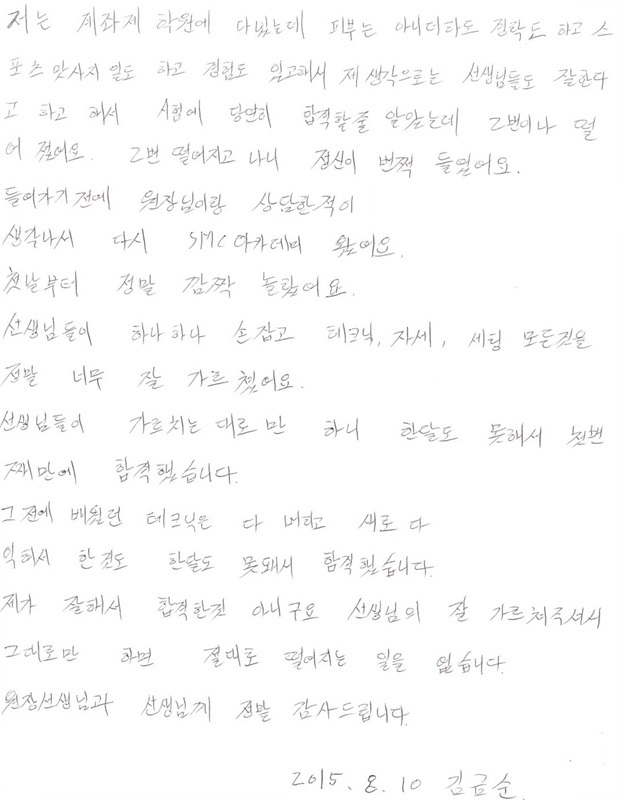 저는 계좌제 학원에 다녔는데 피부는 아니더라도 전락도 하고 스
포츠 맛사지 일도 하고 경험도 있고해서 제 생각으로는 선생님들도 잘한다
고 하고 해서 시험에 당연히 합격할줄 알았는데 2번이나 떨
어 졌어요. 2번 떨어지고 나니 정신이 번쩍 들었어요.
들어가기 전에 원장님이랑 상담한적이
생각나서 다시 SMC 아카데미 왔어요.
첫날부터 정말 깜짝 놀랐어요.
선생님들이 하나하나 손잡고 테크닉, 자세, 세팅 모든것을
정말 너무 잘 가르쳤어요.
선생님들이 가르치는 대로만 하니 한달도 못해서 첫번
째만에 합격했습니다.
그 전에 배웠던 테크닉은 다 버리고 새로 다
익혀서 한것도 한달도 못돼서 합격했습니다.
제가 잘해서 합격한것 아니구요 선생님의 잘 가르쳐주셔서
그대로만 하면 절대로 떨어지는 일을 없습니다.
원장선생님과 선생님께 정말 감사드립니다.
2015. 8. 10 김금순